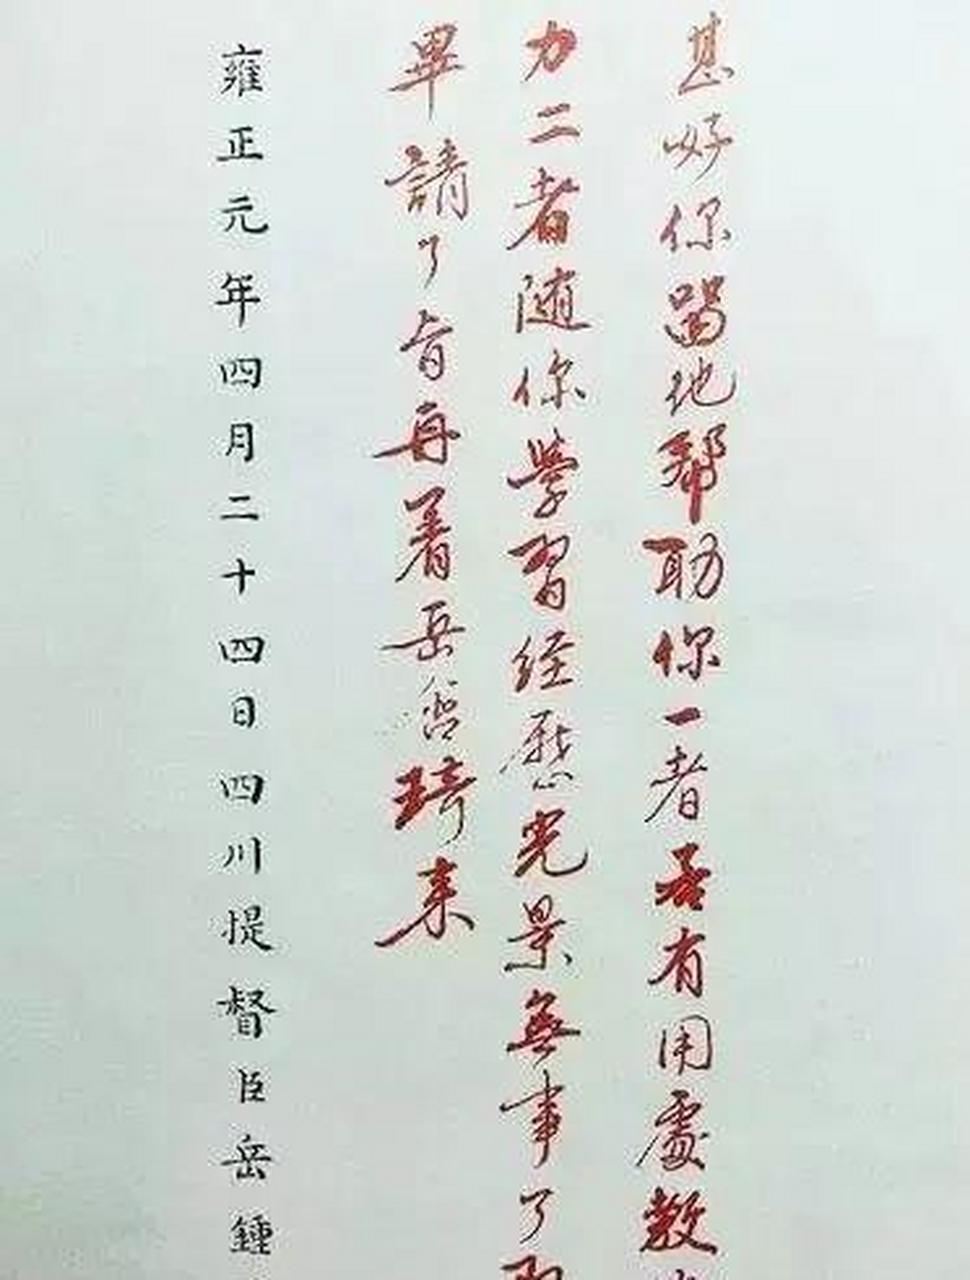 甚好你留他帮助你一者若有用處教
力二者随你學習经歷光景無事了
畢請了旨再著岳含琦来
雍正元年四月二十四日四川提督臣岳鍾